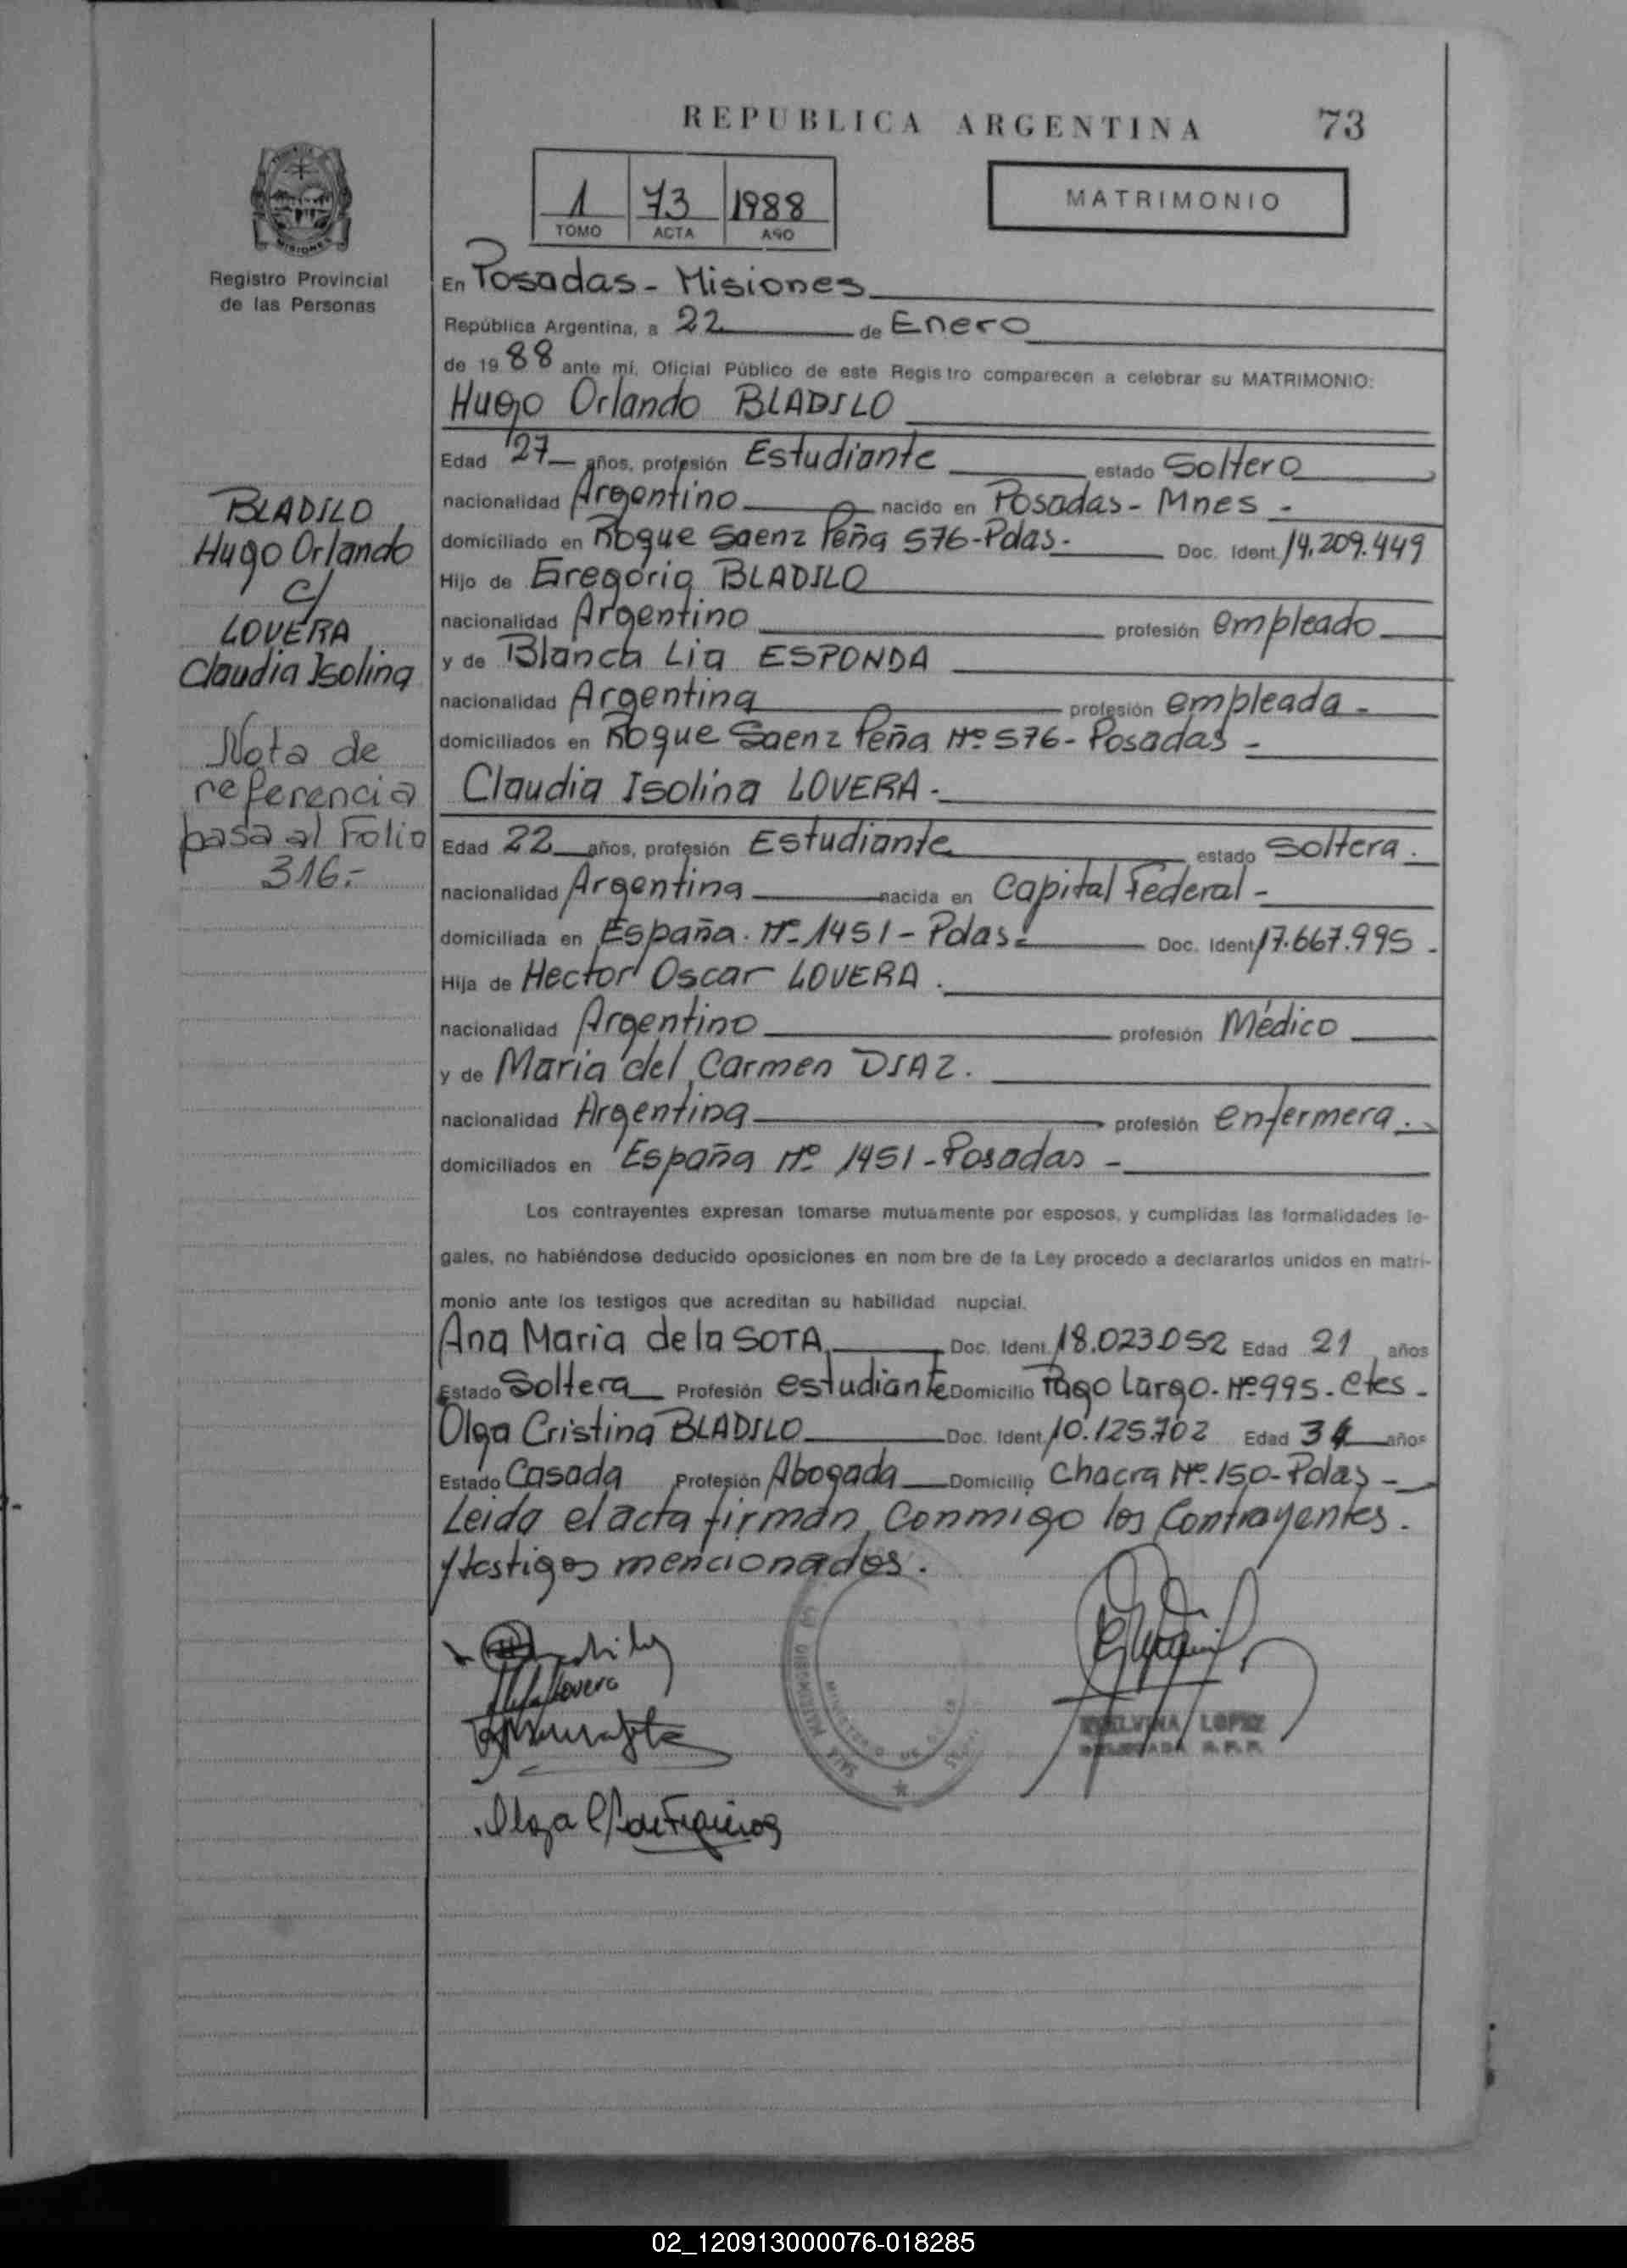 REPUBLICA ARGENTINA 73
1 73 1988
TOMO ACTA AÑO
MATRIMONIO
MISIONES
Registro Provincial
de las Personas
BLADILO
Hugo Orlando
c/
LOVERA
Claudia Isolina
Nota de
referencia
pasa al Folio
316.-
En Posadas - Misiones
República Argentina, a 22 de Enero
de 19 88 ante mí, Oficial Público de este Registro comparecen a celebrar su MATRIMONIO:
Hugo Orlando BLADILO
Edad 27 años, profesión Estudiante estado Soltero
nacionalidad Argentino nacido en Posadas - Mnes -
domiciliado en Roque Saenz Peña 576 - Pdas - Doc. Ident. 14.209.449
Hijo de Gregorio BLADILO
nacionalidad Argentino profesión empleado
y de Blanca Lia ESPONDA
nacionalidad Argentina profesión empleada -
domiciliados en Roque Saenz Peña Nº 576 - Posadas -
Claudia Isolina LOVERA -
Edad 22 años, profesión Estudiante estado Soltera.
nacionalidad Argentina nacida en Capital Federal -
domiciliada en España Nº 1451 - Pdas - Doc. Ident. 17.667.995 -
Hija de Hector Oscar LOVERA.
nacionalidad Argentino profesión Médico
y de Maria del Carmen DIAZ.
nacionalidad Argentina profesión enfermera.
domiciliados en España Nº 1451 - Posadas -
Los contrayentes expresan tomarse mutuamente por esposos, y cumplidas las formalidades le-
gales, no habiéndose deducido oposiciones en nom bre de la Ley procedo a declararlos unidos en matri-
monio ante los testigos que acreditan su habilidad nupcial.
Ana Maria de la SOTA Doc. Ident. 18.023.052 Edad 21 años
Estado Soltera Profesión estudiante Domicilio Pago Largo - Nº 995 - Ctes -
Olga Cristina BLADILO Doc. Ident. 10.125.702 Edad 34 años
Estado Casada Profesión Abogada Domicilio Chacra Nº 150 - Pdas -
Leida el acta firman, conmigo los contrayentes.
y testigos mencionados.
Lovera
Olga
LOPEZ
02_120913000076-018285